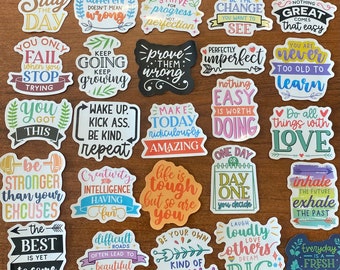 DAY
different
DOESN'T MEAN
WRONG
progress
PERFECTION
CHANGE
YOU WANT TO
SEE
NOTHING
GREAT
COMES THAT
easy
YOU ONLY
FAIL
when you
STOP
TRYING
KEEP
GOING
KEEP
growing
prove
THEM
wrong
PERFECTLY
imperfect
YOU ARE
never
TOO OLD TO
learn
YOU
GOT
THIS
WAKE UP.
KICK ASS.
BE KIND.
repeat
MAKE
TODAY
ridiculously
AMAZING
nothing
EASY
IS WORTH
DOING
Do all
things
WITH
LOVE
be
STRONGER
than your
EXCUSES
Creativity
IS
INTELLIGENCE
HAVING
fun
life is
tough
but so are
YOU
ONE DAY
OR
DAY
ONE
you decide
Inhale
THE FUTURE
exhale
THE PAST
THE
BEST
IS YET
to come
difficult
ROADS
OFTEN LEAD TO
beautiful
BE YOUR OWN
KIND OF
LAUGH
loudly
LOVE
others
DREAM
everyday
IS A
FRESH